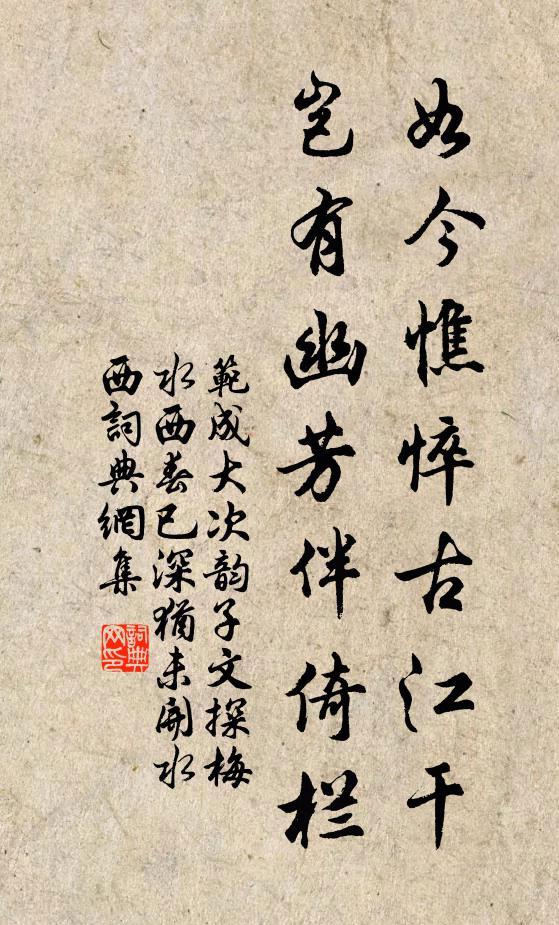 如今憔悴古江干
岂有幽芳伴倚栏
範成大次韵子文探梅
水西春已深猶未開水
西詞典網集
詞典
网印